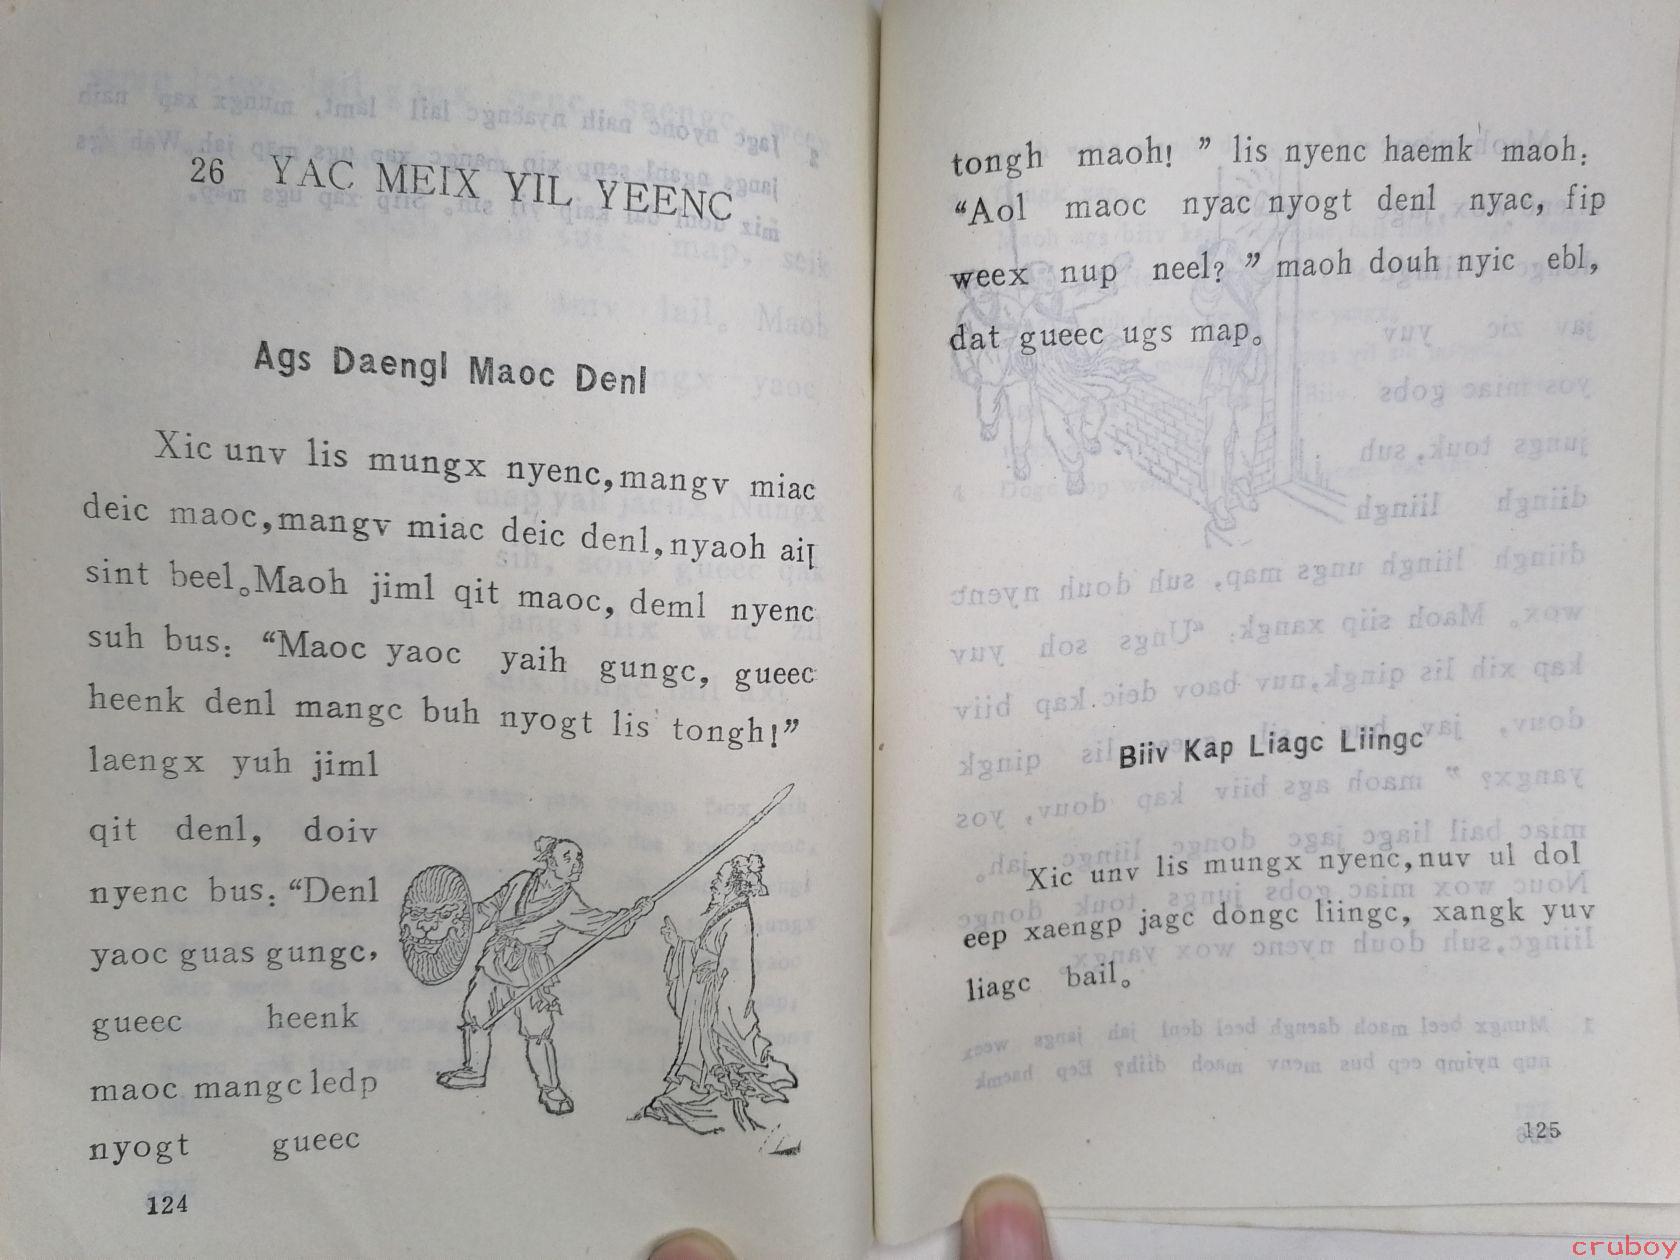 26 YAC MEIX YIL YEENC
Ags Daengl Maoc Denl
Xic unv lis mungx nyenc,mangv miac
deic maoc,mangv miac deic denl,nyaoh ail
sint beel。Maoh jiml qit maoc, deml nyenc
suh bus: “Maoc yaoc yaih gungc, gueec
heenk denl mangc buh nyogt lis tongh!”
laengx yuh jiml
qit denl, doiv
nyenc bus: “Denl
yaoc guas gungc,
gueec heenk
maoc mangc ledp
nyogt gueec
124
tongh maoh! ” lis nyenc haemk maoh:
“Aol maoc nyac nyogt denl nyac, fip
weex nup neel? ” maoh douh nyic ebl,
dat gueec ugs map。
Biiv Kap Liagc Liingc
Xic unv lis mungx nyenc,nuv ul dol
eep xaengp jagc dongc liingc, xangk yuv
liagc bail。
125
cruboy